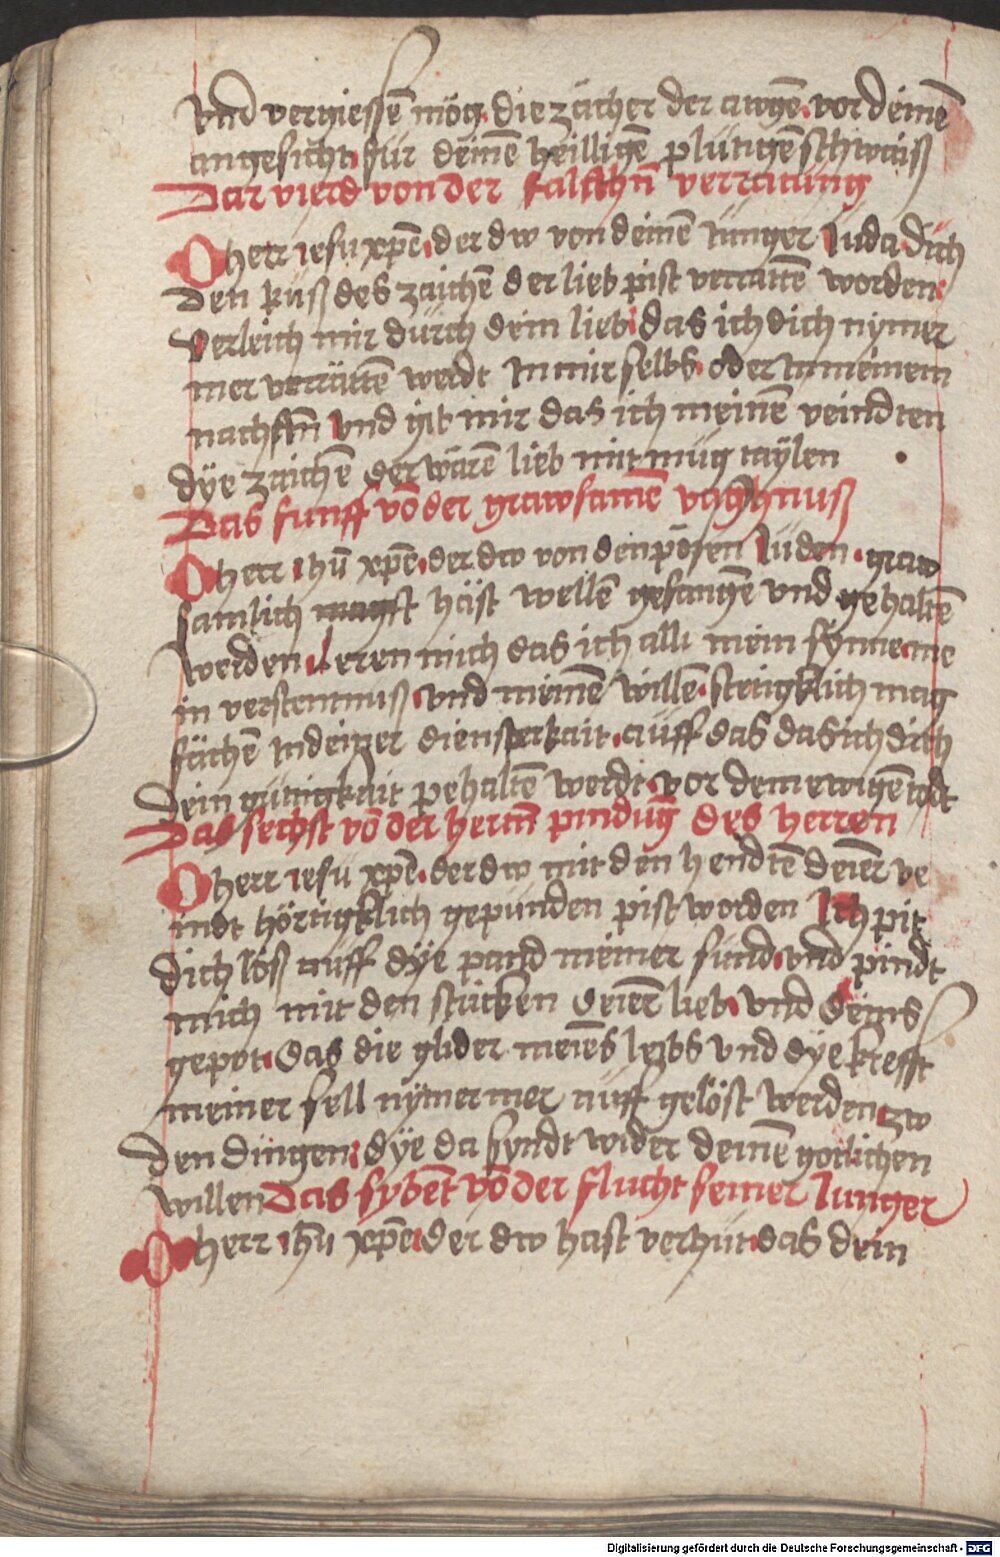 vnd vergiessē mög die zäher der awgē vor deinē
angesicht für deinē heilligē plütigē schwaiß
Dar vierd von der falschn̄ verratüng
O herr iesu xp̄e der dw von deinē Iünger Iuda dürch
den küß des zaichē der lieb pist verratē worden
verleich mir dürch dein lieb das ich dich nymer
mer verrättē werdt In mir selbs oder in meinem
nachstn̄ vnd gib mir das ich meinē veindten
dÿe zaichē der warē lieb mit müg taÿlen
Das funff vō der grawsamē vachnuß
O herr ihū xp̄e der dw von den pösen Iüden graw
samlich häst wellē gefangē vnd gehaltē
werden leren mich das ich alli mein synne me
in verstentnuß vnd meinē willē stetigklich mag
fächē In deiner dienstperkait auff das das ich dürch
dein gütigkait pehaltē werdt vor dem ewigē todt
Das sechst vō der hertn̄ pindūg des herren
O herr iesu xp̄e der dw mit den hendtē deiēr ve
indt hörtigklich gepunden pist worden Ich pit
dich lös auff dÿe pand meiner sünd vnd pindt
mich mit den stricken deiēr lieb vnd deins
gepot das die glider meiēs leibs vnd dÿe krefft
meiner sell nymer mer auff gelöst werden zw
den dingen dÿe da syndt wider deinē götlichen
willen Das sybēt vō der flucht seiner Iunger
O herr ihū xp̄e der dw hast verhüt das dein
Digitalisierung gefördert durch die Deutsche Forschungsgemeinschaft - DFG